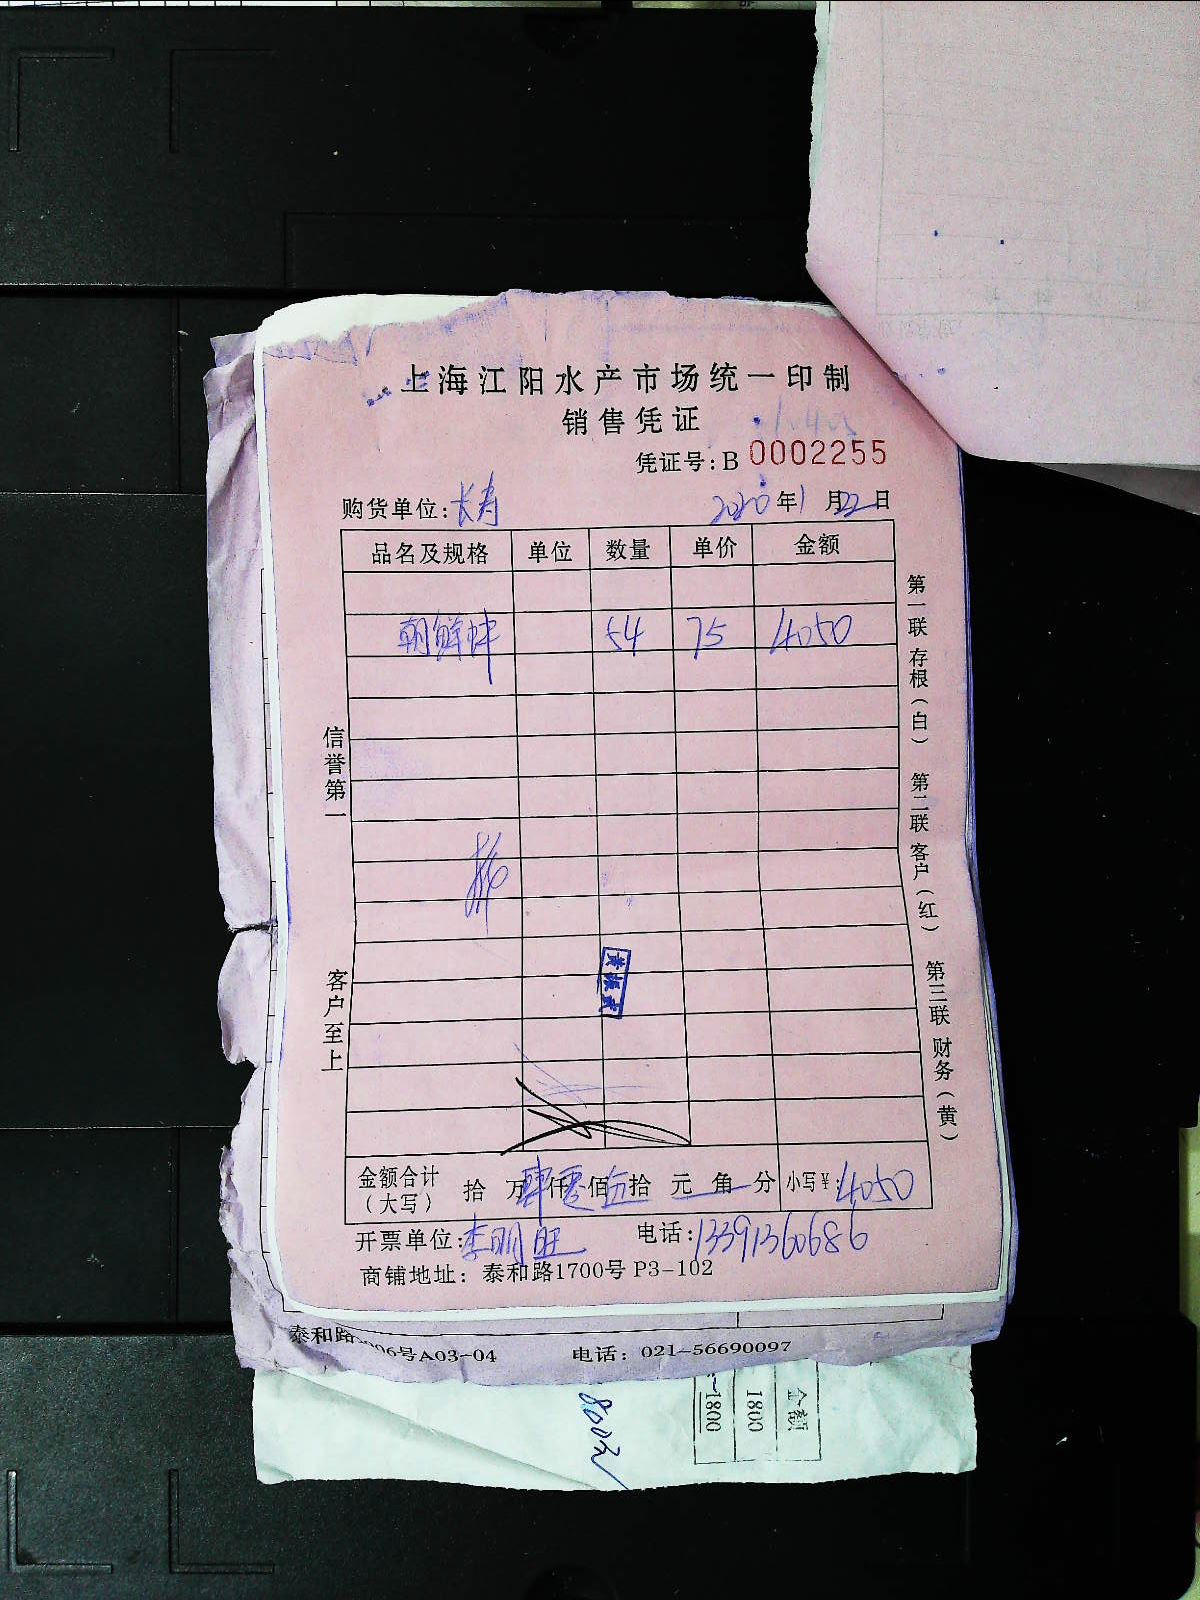 上海江阳水产市场统一印制
销售凭证
凭证号：B 0002255
购货单位：长寿 2020年1月22日
品名及规格 单位 数量 单价 金额
朝鲜蚌 54 75 4050
信誉第一
客户至上
第一联 存根（白） 第二联 客户（红） 第三联 财务（黄）
金额合计（大写） 拾 万 肆 仟 零 佰 伍 拾 元 角 分 小写￥：4050
开票单位：李明旺 电话：13391360686
商铺地址：泰和路1700号 P3-102
泰和路 006号A03-04 电话：021-56690097
金额
1800
1800